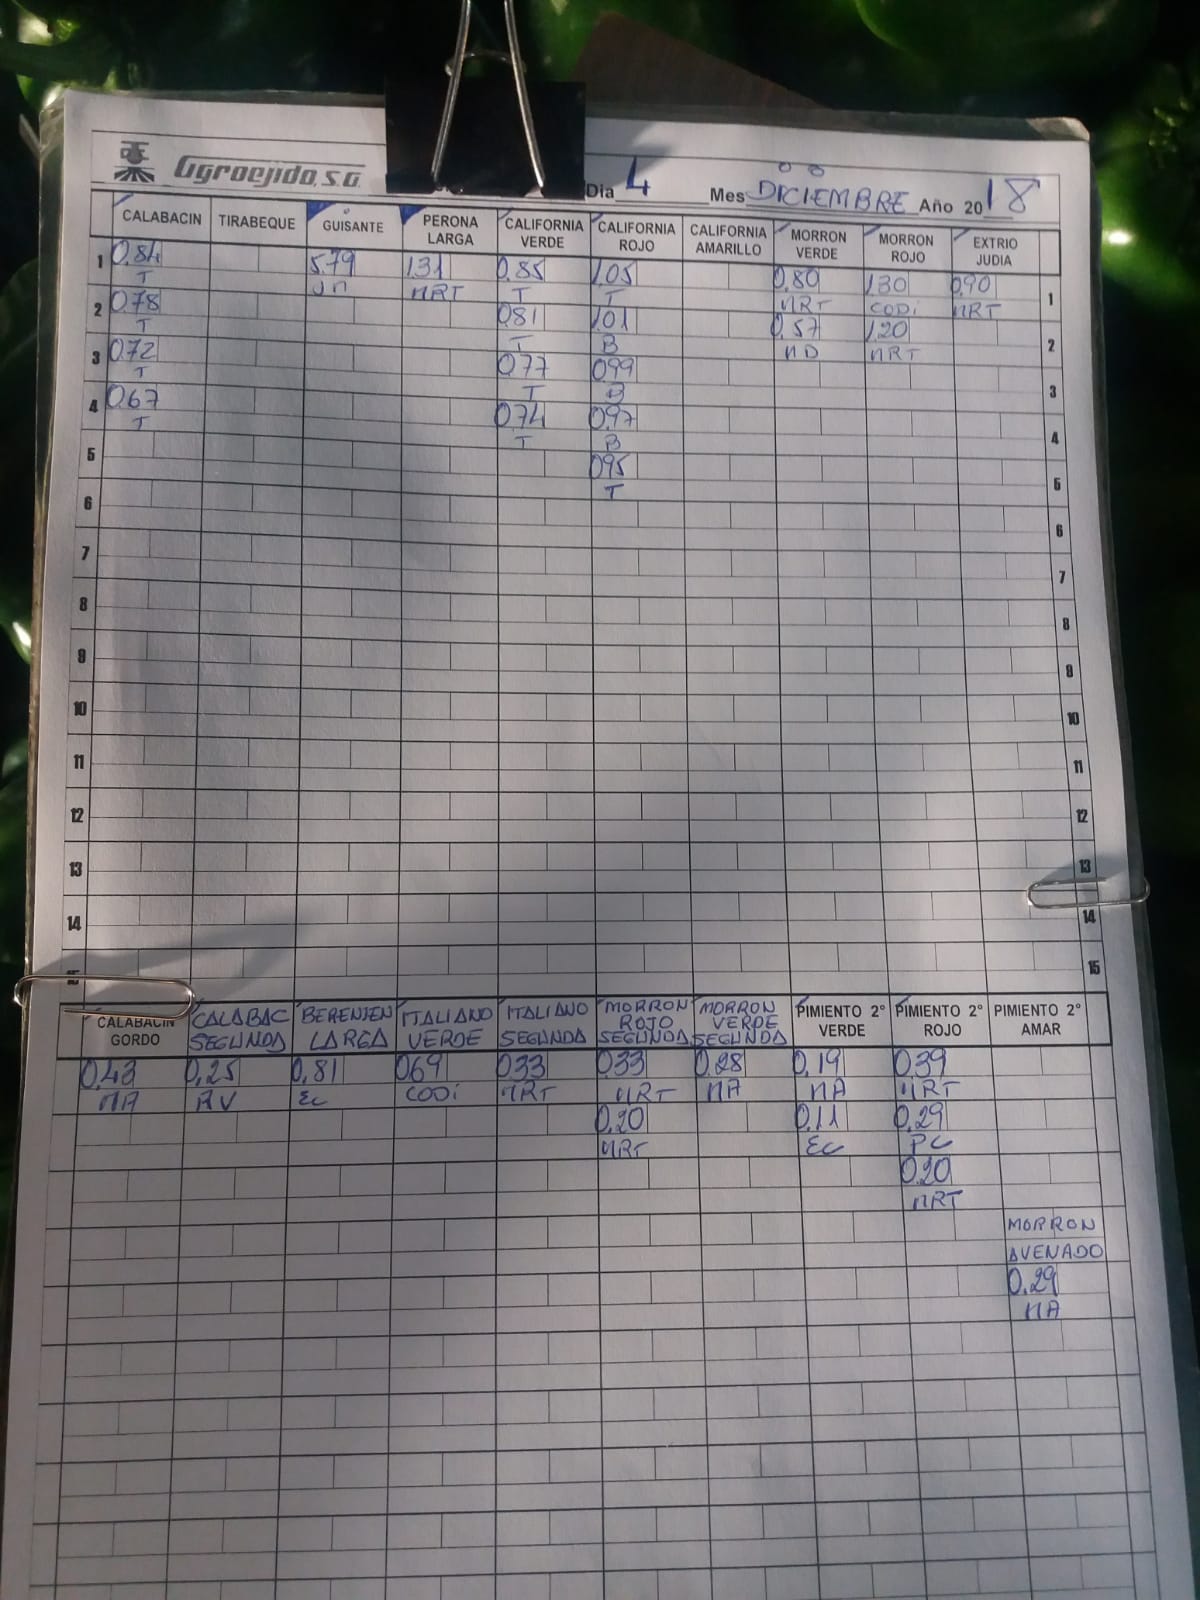 Agroejido, S.A.
Dia 4 Mes DICIEMBRE Año 2018
CALABACIN TIRABEQUE GUISANTE PERONA LARGA CALIFORNIA VERDE CALIFORNIA ROJO CALIFORNIA AMARILLO MORRON VERDE MORRON ROJO EXTRIO JUDIA
1 0,84 5,79 1,31 0,85 1,05 0,80 1,30 0,90 1
T MRT T T MRT CODi MRT
2 0,78 0,81 1,01 0,57 1,20 2
T T B MD MRT
3 0,72 0,77 0,99 3
T T B
4 0,67 0,74 0,97 4
T T B
5 0,95 5
T
6 6
7 7
8 8
9 9
10 10
11 11
12 12
13 13
14 14
15 15
CALABACIN GORDO CALABAC SEGUNDA BERENJEN LARGA ITALIANO VERDE ITALIANO SEGUNDA MORRON ROJO SEGUNDA MORRON VERDE SEGUNDA PIMIENTO 2º VERDE PIMIENTO 2º ROJO PIMIENTO 2º AMAR
0,43 0,25 0,81 0,69 0,33 0,33 0,28 0,19 0,39
MA AV Ec CODi MRT MRT MA MA MRT
0,20 0,11 0,29
MRT Ec PC
0,20
MRT
MORRON
AVENADO
0,29
MA